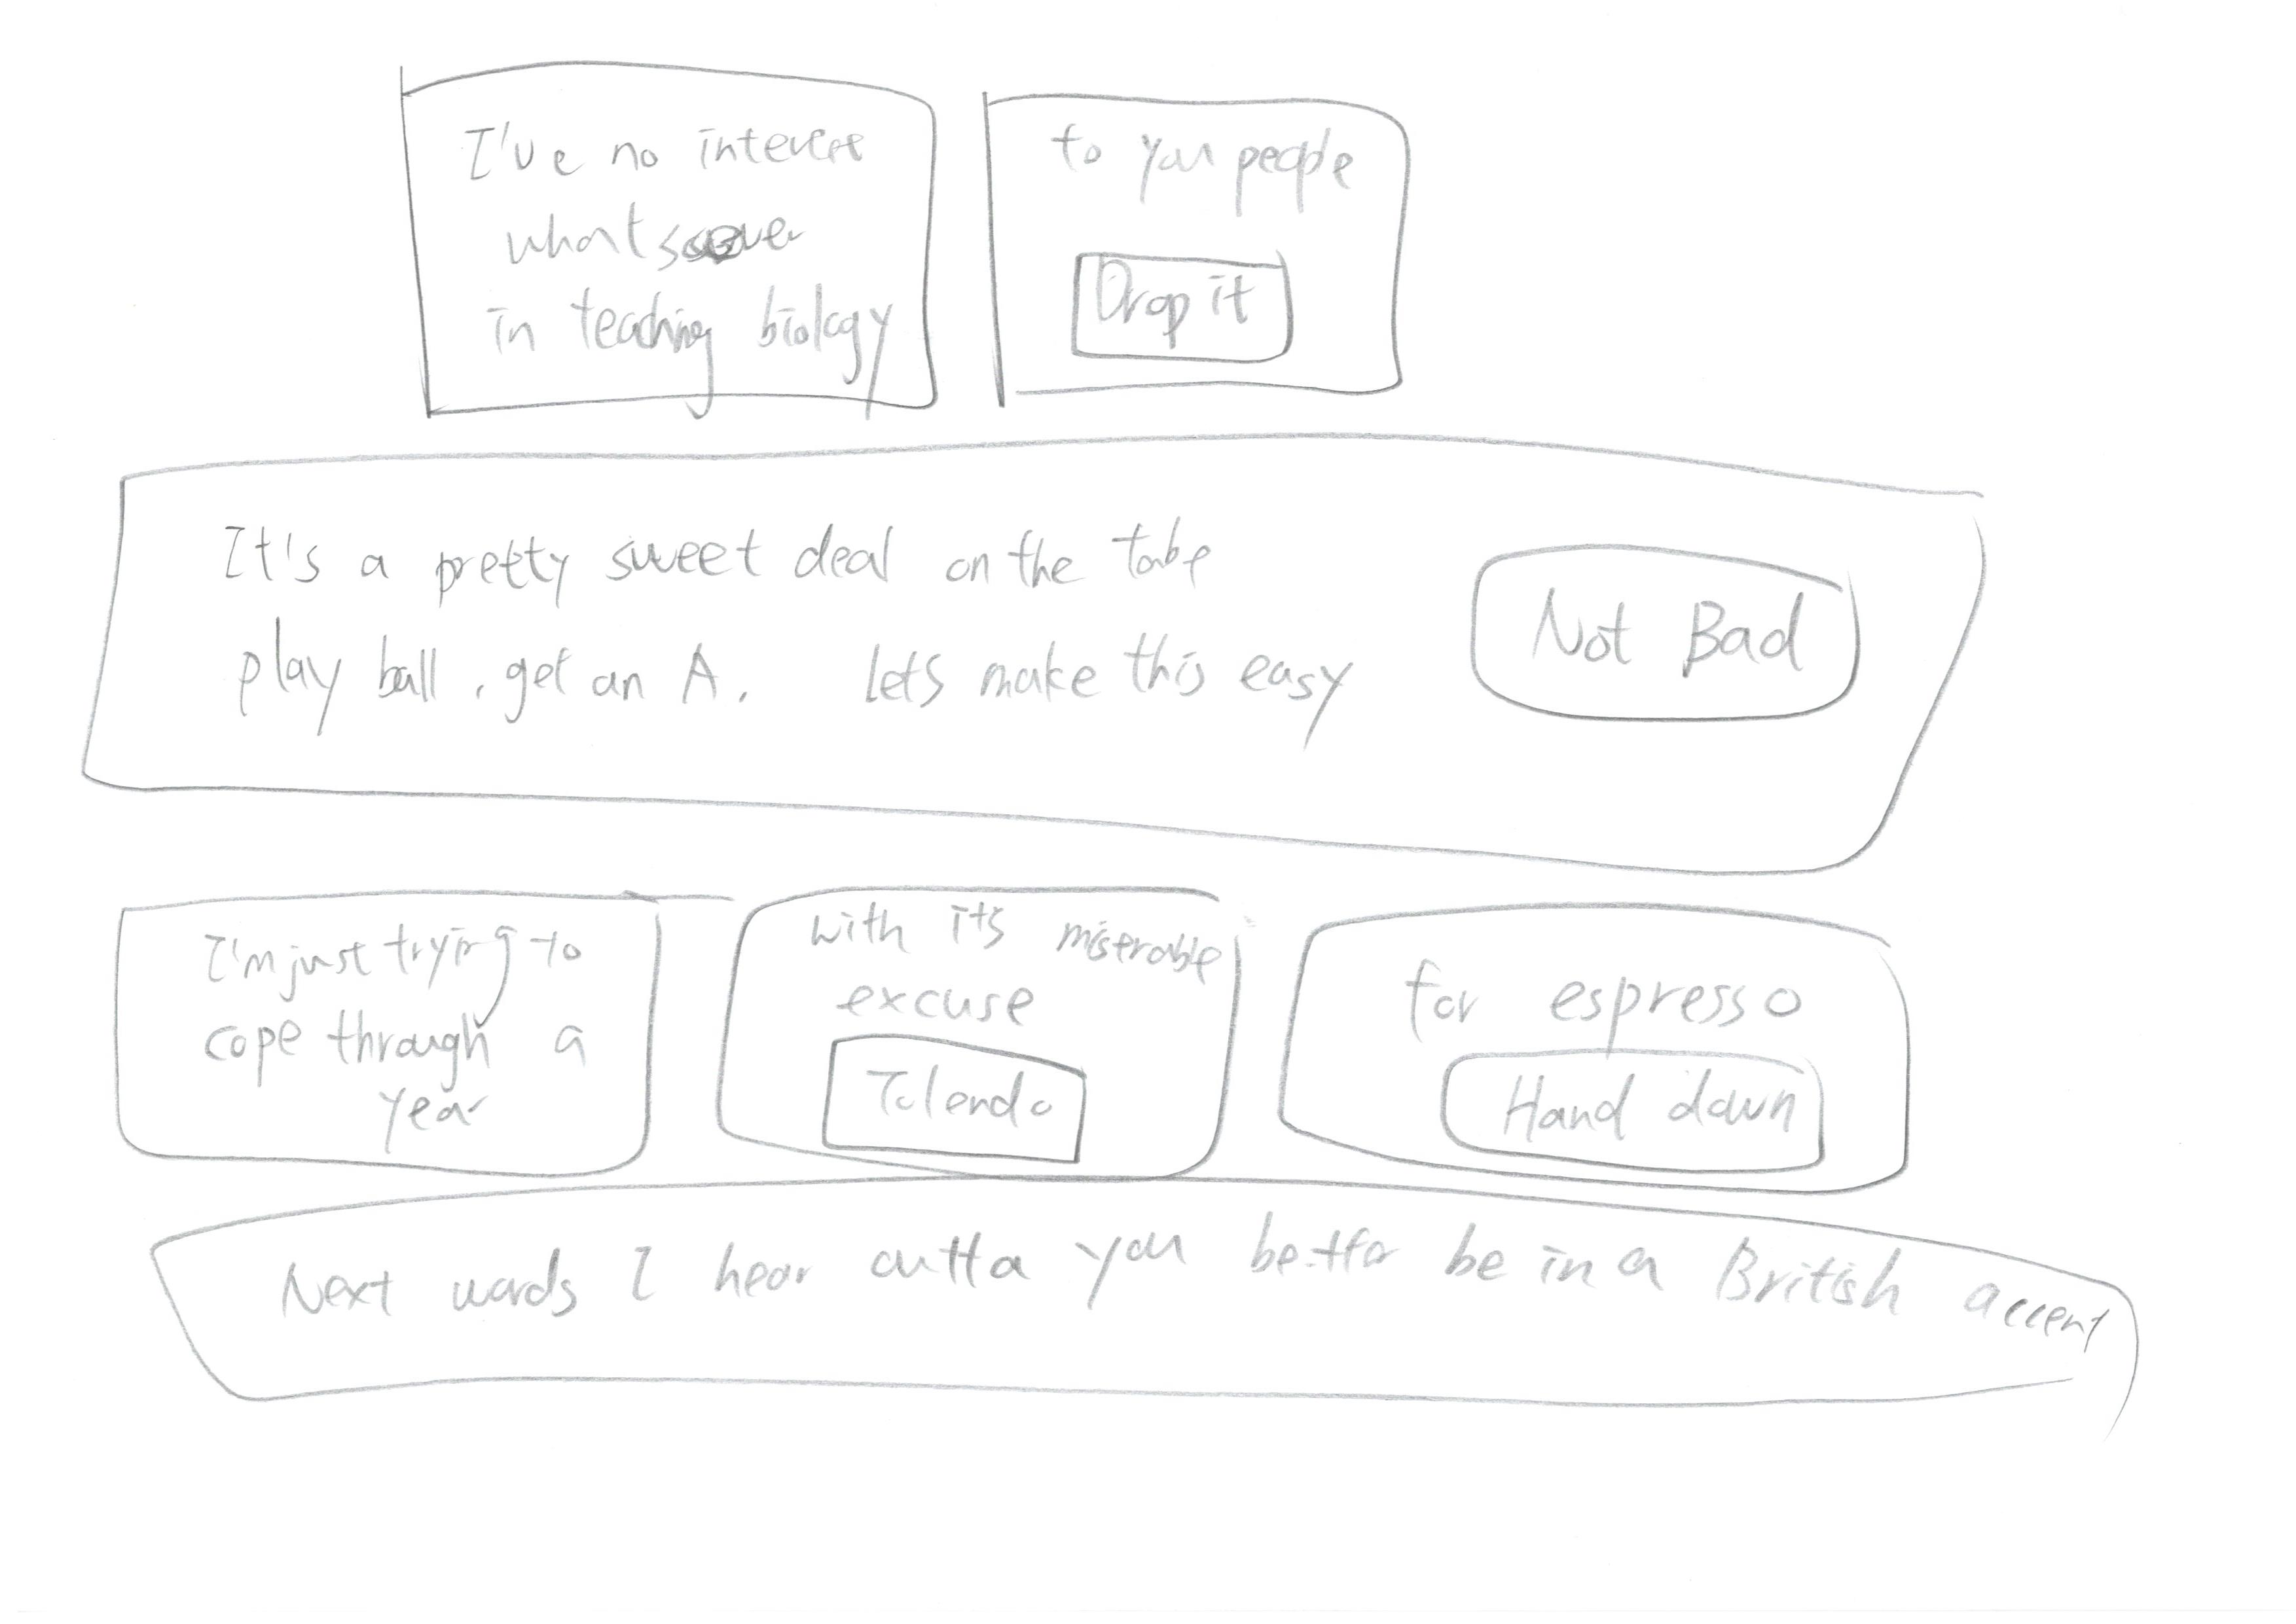 I've no interest
whatsoever
in teaching biology
to you people
Drop it
It's a pretty sweet deal on the table
play ball, get an A. Lets make this easy
Not Bad
I'm just trying to
cope through a
year
with its miserable
excuse
Tolendo
for espresso
Hand down
Next words I hear outta you better be in a British accent